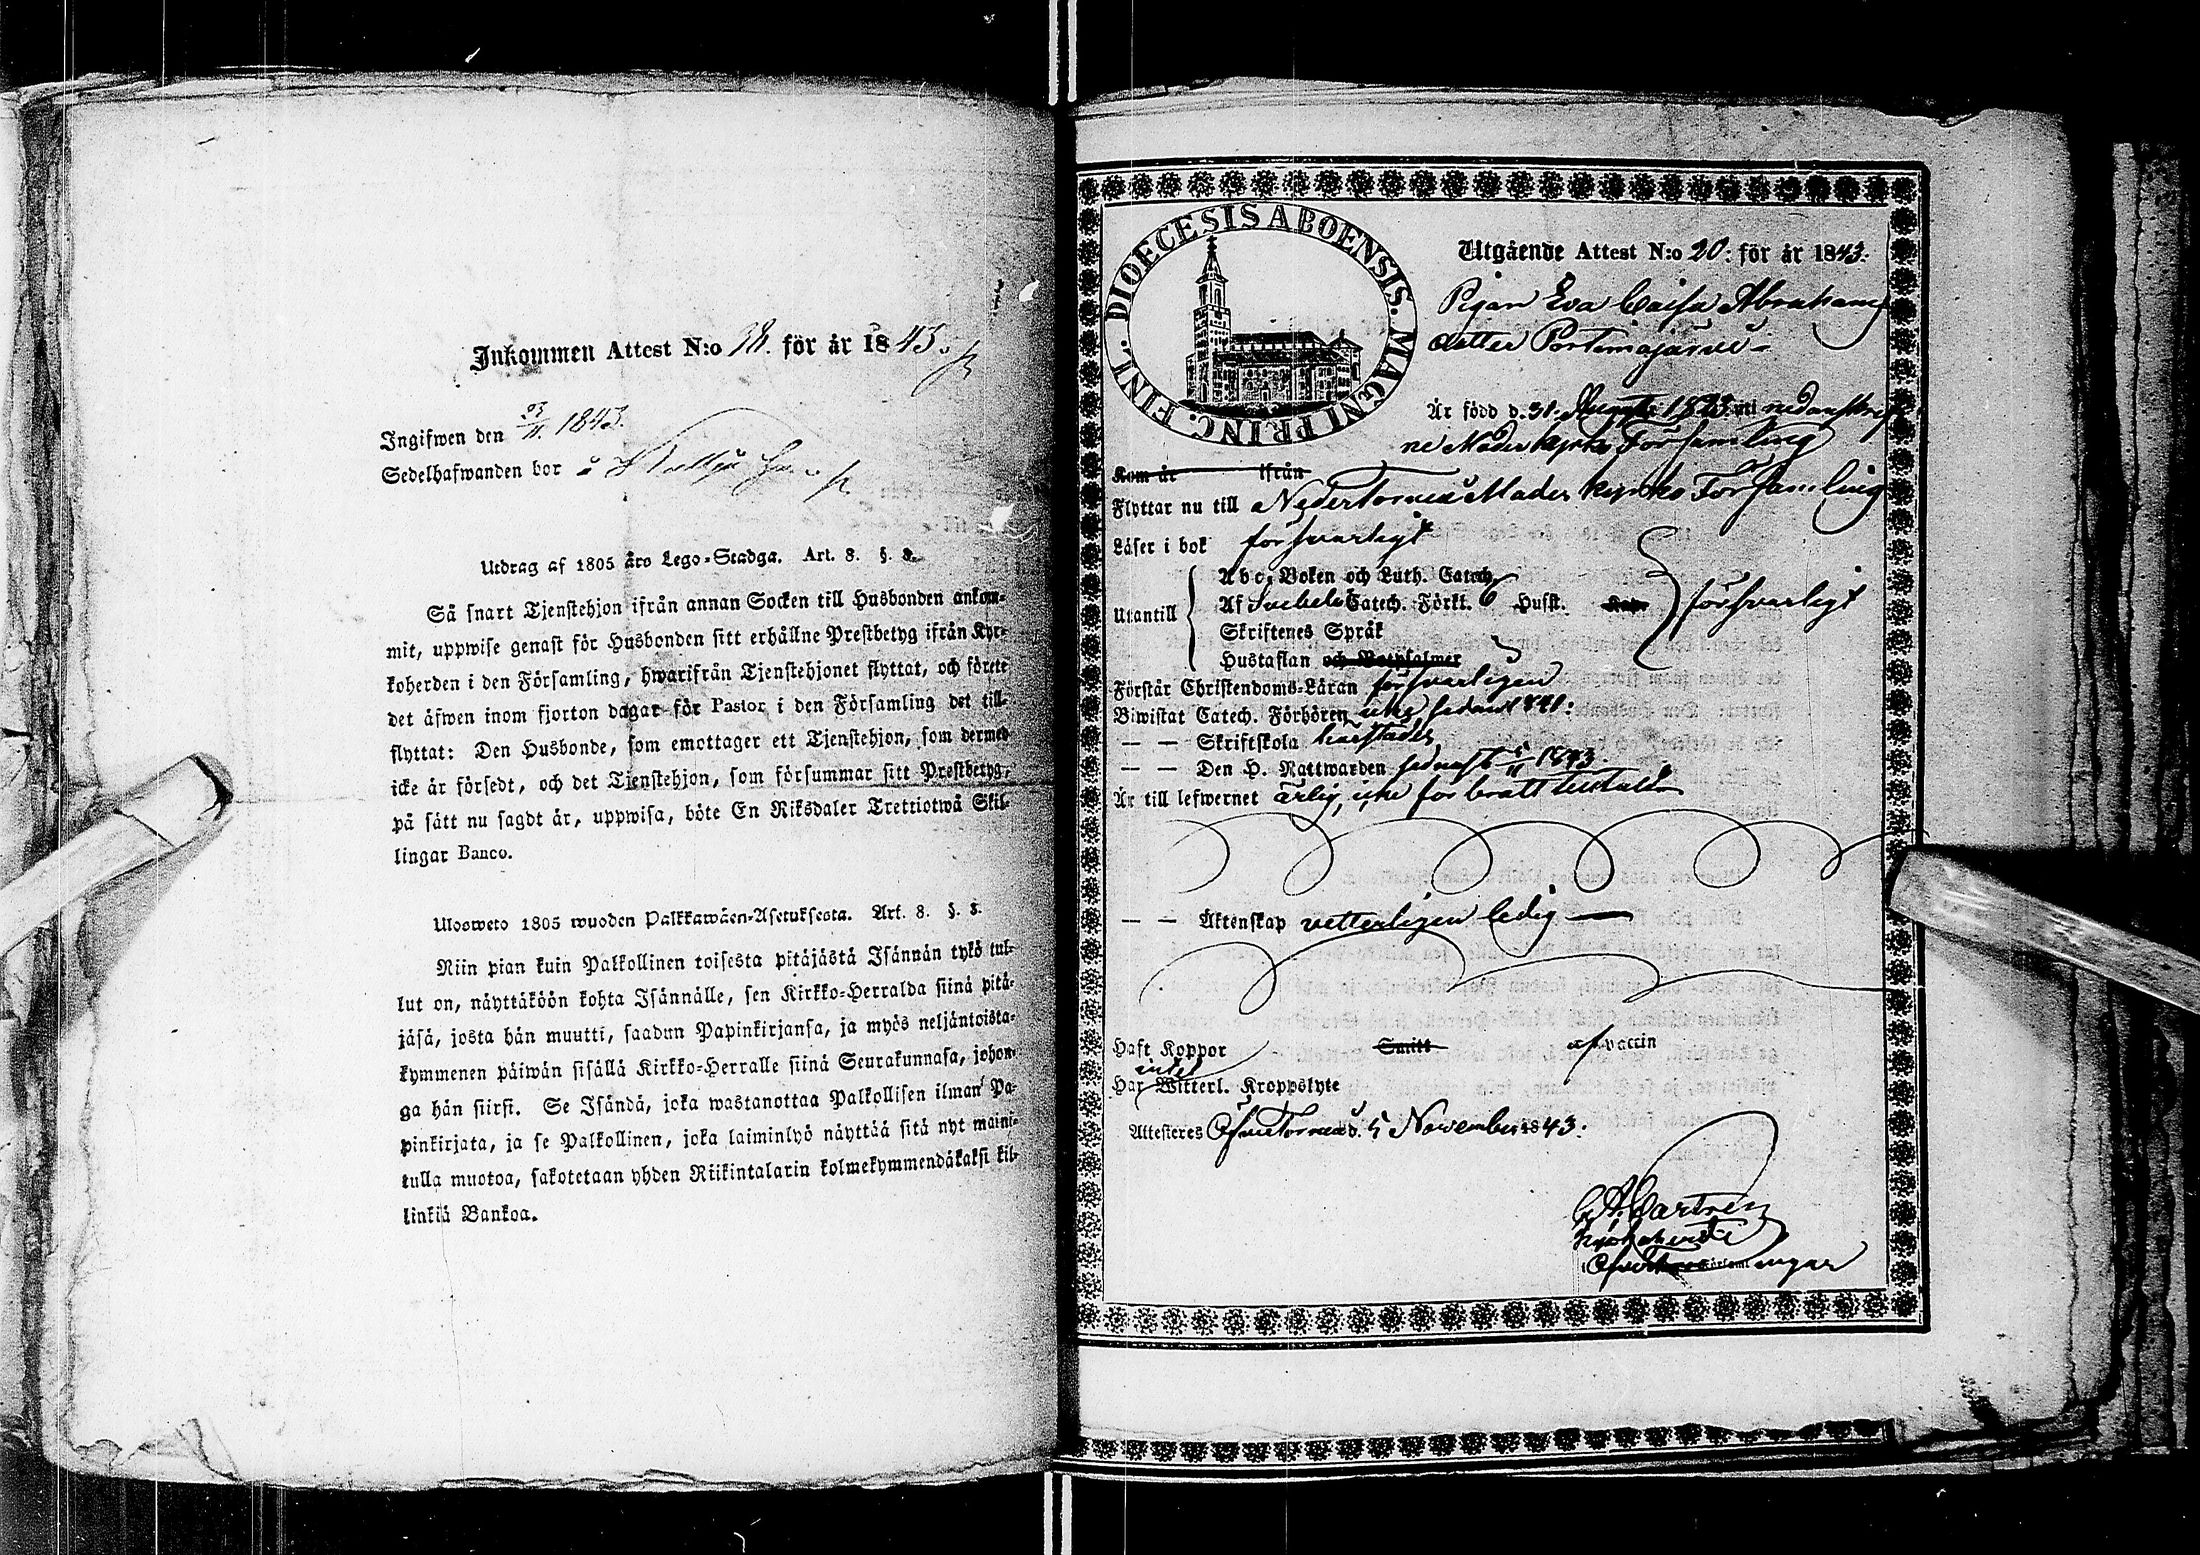 Inkommen Attest N:o 38. för år 1843.
Ingifwen den 23/11. 1843.
Sedelhafwanden bor å
Utdrag af 1805 års Lego-Stadga. Art. 8. §. 8.
Så snart Tjenstehjon ifrån annan Socken till Husbonden ankom-
mit, uppwise genast för Husbonden sitt erhållne Prestbetyg ifrån Kyr-
koherden i den Församling, hwarifrån Tjenstehjonet flyttat, och förete
det äfwen inom fjorton dagar för Pastor i den Församling det till-
flyttat: Den Husbonde, som emottager ett Tjenstehjon, som dermed
icke är försedt, och det Tjenstehjon, som försummar sitt Prestbetyg,
på sätt nu sagdt är, uppwisa, böte En Riksdaler Trettiotwå Skil-
lingar Banco.
Ulosweto 1805 wuoden Palkkawäen-Asetuksesta. Art. 8. §. 8.
Niin pian kuin Palkollinen toisesta pitäjästä Isännän tykö tul-
lut on, näyttäköön kohta Isännälle, sen Kirkko-Herralda siinä pitä-
jäsä, josta hän muutti, saadun Papinkirjansa, ja myös neljäntoista-
kymmenen päiwän sisällä Kirkko-Herralle siinä Seurakunnasa, johon-
ga hän siirsi. Se Isändä, joka wastanottaa Palkollisen ilman Pa-
pinkirjata, ja se Palkollinen, joka laiminlyö näyttää sitä nyt maini-
tulla muotoa, sakotetaan yhden Riikintalarin kolmekymmendäkaksi kil-
linkiä Bankoa.
DIOECESIS ABOENSIS. MAGNI PRINC. FINL.
Utgående Attest N:o 20: för år 1843.
Pigan Eva Caisa Abrahams
dotter Portimojärvi
Är född d. 31. Augusti 1823 uti nedanskref
ne Moderkyrko Församling
Kom år ifrån
Flyttar nu till Nedertorneå Moder kyrko Församling
Läser i bok försvarligt
Abc, Boken och Luth. Catech.
Utantill Af Svebelii Catech. Förkl. Husst. försvarligt
Skriftenes Språk
Hustaflan och Botpsalmer
Förstår Christendoms-Läran försvarligen
Biwistat Catech. Förhören sedan 1841:
— — Skriftskola härstädes
— — Den H. Nattwarden sednast 5/11 1843.
Är till lefwernet ärlig, icke för brott tilltalad
— — Äktenskap vetterligen ledig —
Haft Koppor Smitt af vaccin
intet
Har Witterl. Kroppslyte
Attesteras Öfvertorneå d. 5 November 1843.
Castrén
Kyrkoherde